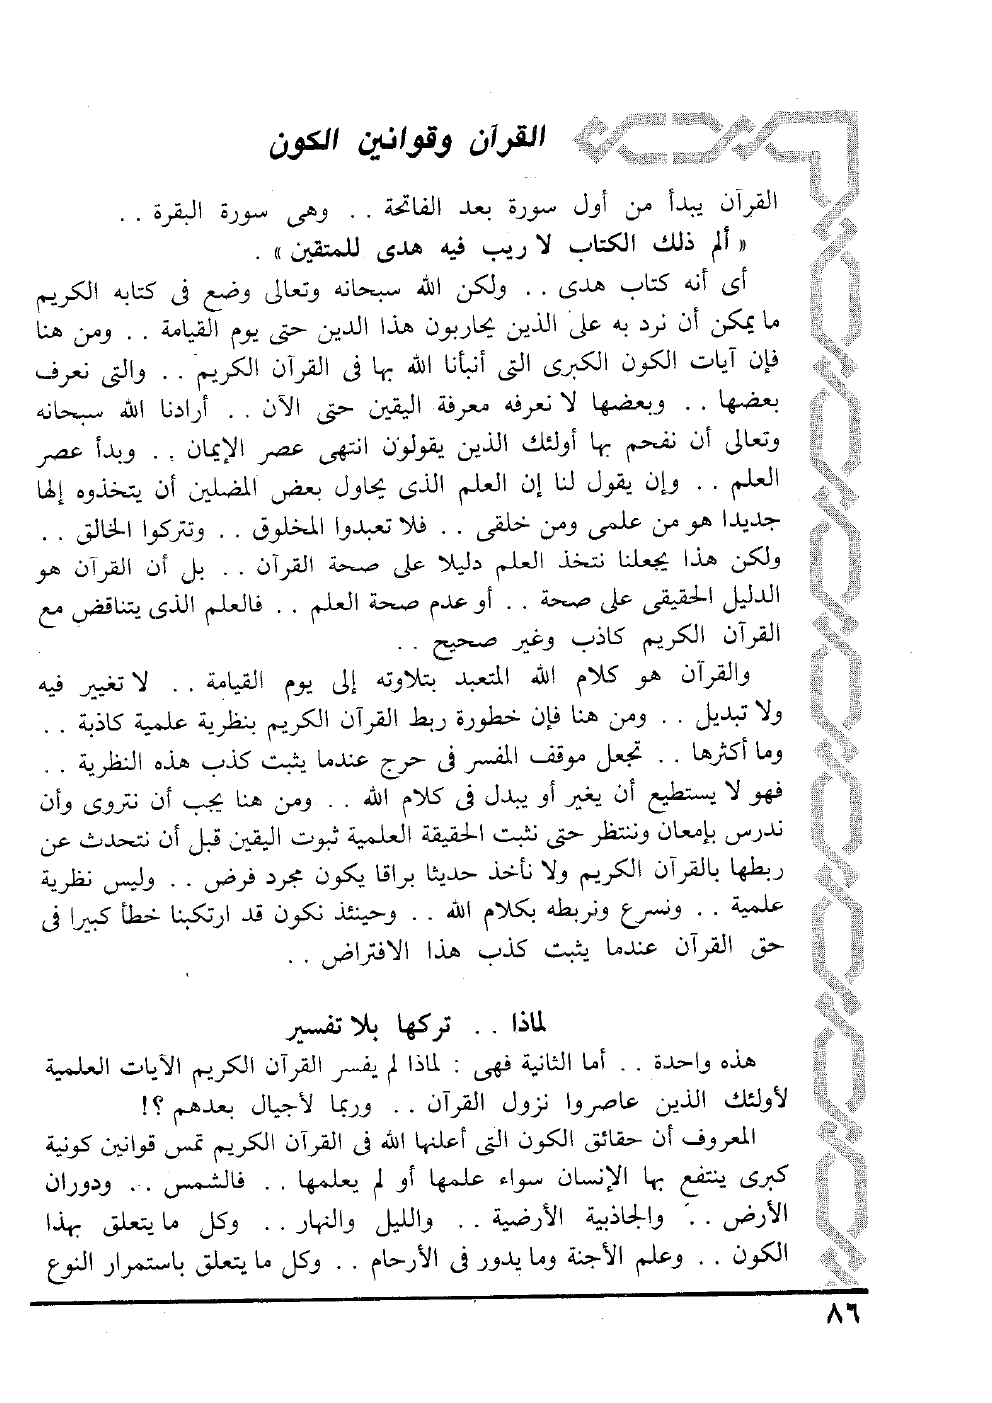 القرآن وقوانين الكون
القرآن يبدأ من أول سورة بعد الفاتحة . . وهى سورة البقرة . .
« ألم ذلك الكتاب لا ريب فيه هدى للمتقين » .
أى أنه كتاب هدى . . ولكن الله سبحانه وتعالى وضع فى كتابه الكريم
ما يمكن أن نرد به على الذين يحاربون هذا الدين حتى يوم القيامة . . ومن هنا
فإن آيات الكون الكبرى التى أنبأنا الله بها فى القرآن الكريم . . والتى نعرف
بعضها . . وبعضها لا نعرفه معرفة اليقين حتى الآن . . أرادنا الله سبحانه
وتعالى أن نفحم بها أولئك الذين يقولون انتهى عصر الإيمان . . وبدأ عصر
العلم . . وإن يقول لنا إن العلم الذى يحاول بعض المضلين أن يتخذوه إلها
جديدا هو من علمى ومن خلقى . . فلا تعبدوا المخلوق . . وتتركوا الخالق . .
ولكن هذا يجعلنا نتخذ العلم دليلا على صحة القرآن . . بل أن القرآن هو
الدليل الحقيقى على صحة . . أو عدم صحة العلم . . فالعلم الذى يتناقض مع
القرآن الكريم كاذب وغير صحيح . .
والقرآن هو كلام الله المتعبد بتلاوته إلى يوم القيامة . . لا تغيير فيه
ولا تبديل . . ومن هنا فإن خطورة ربط القرآن الكريم بنظرية علمية كاذبة . .
وما أكثرها . . تجعل موقف المفسر فى حرج عندما يثبت كذب هذه النظرية . .
فهو لا يستطيع أن يغير أو يبدل فى كلام الله . . ومن هنا يجب أن نتروى وأن
ندرس بإمعان وننتظر حتى نثبت الحقيقة العلمية ثبوت اليقين قبل أن نتحدث عن
ربطها بالقرآن الكريم ولا نأخذ حديثا براقا يكون مجرد فرض . . وليس نظرية
علمية . . ونسرع ونربطه بكلام الله . . وحينئذ نكون قد ارتكبنا خطأ كبيرا فى
حق القرآن عندما يثبت كذب هذا الافتراض . .
لماذا . . تركها بلا تفسير
هذه واحدة . . أما الثانية فهى : لماذا لم يفسر القرآن الكريم الآيات العلمية
لأولئك الذين عاصروا نزول القرآن . . وربما لأجيال بعدهم ؟!
المعروف أن حقائق الكون التى أعلنها الله فى القرآن الكريم تمس قوانين كونية
كبرى ينتفع بها الإنسان سواء علمها أو لم يعلمها . . فالشمس . . ودوران
الأرض . . والجاذبية الأرضية . . والليل والنهار . . وكل ما يتعلق بهذا
الكون . . وعلم الأجنة وما يدور فى الأرحام . . وكل ما يتعلق باستمرار النوع
٨٦